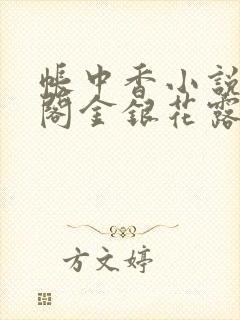 帐中香小說
閣金銀花露
方文婷